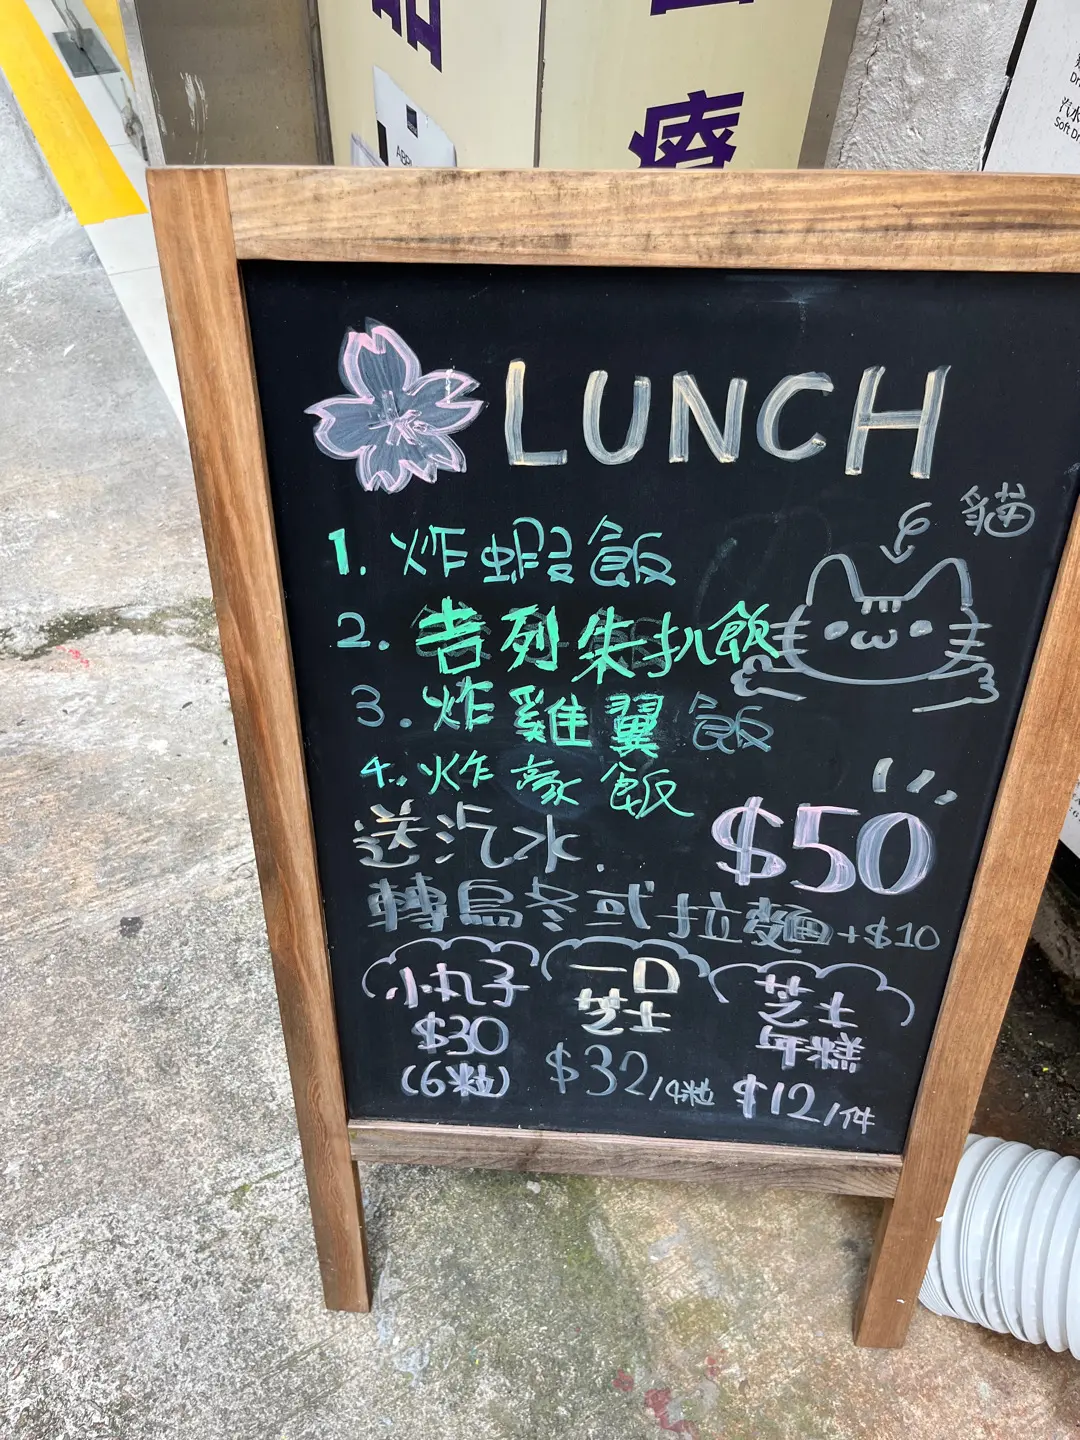 療
汽水
LUNCH
貓
1. 炸蝦飯
2. 吉列朱扒飯
3. 炸雞翼飯
4. 炸豪飯
送汽水.
$50
轉烏冬或拉麵+$10
小丸子
$30
(6粒)
一口
芝士
$32/4粒
芝士
年糕
$12/件